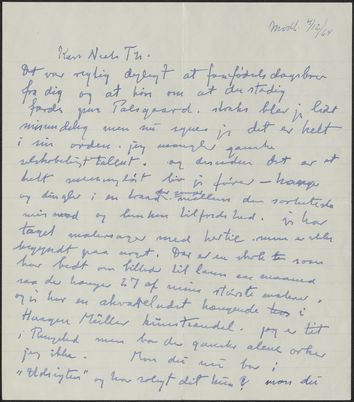 Modt. 4/12/64
Kære Niels Th.
Det var rigtig dejligt at faa fødselsdagsbrev
fra dig og at høre om at du stadig
færdes paa Palsgaard. straks blev jeg lidt
misundelig men nu synes jeg det er helt
i sin orden. jeg mangler ganske
selskabeligt talent. og desuden det er at
helt meningsløst liv jeg fører –
og dingler i en mellem den sorteste
mismod og en tilfredshed. Vi har
taget malersager med hertil. men er ikke
begyndt paa noget. Der er en skole som
har bedt om billeder til laan en maaned
saa der hænger 27 af mine største malerier,
og vi har en akvareludst hængende i
Haagen Müller kunsthandel. jeg er tit
i Ringsted men bor der ganske alene orker
jeg ikke. Mon du nu bor i
"Udsigten" og har solgt dit hus? mon du